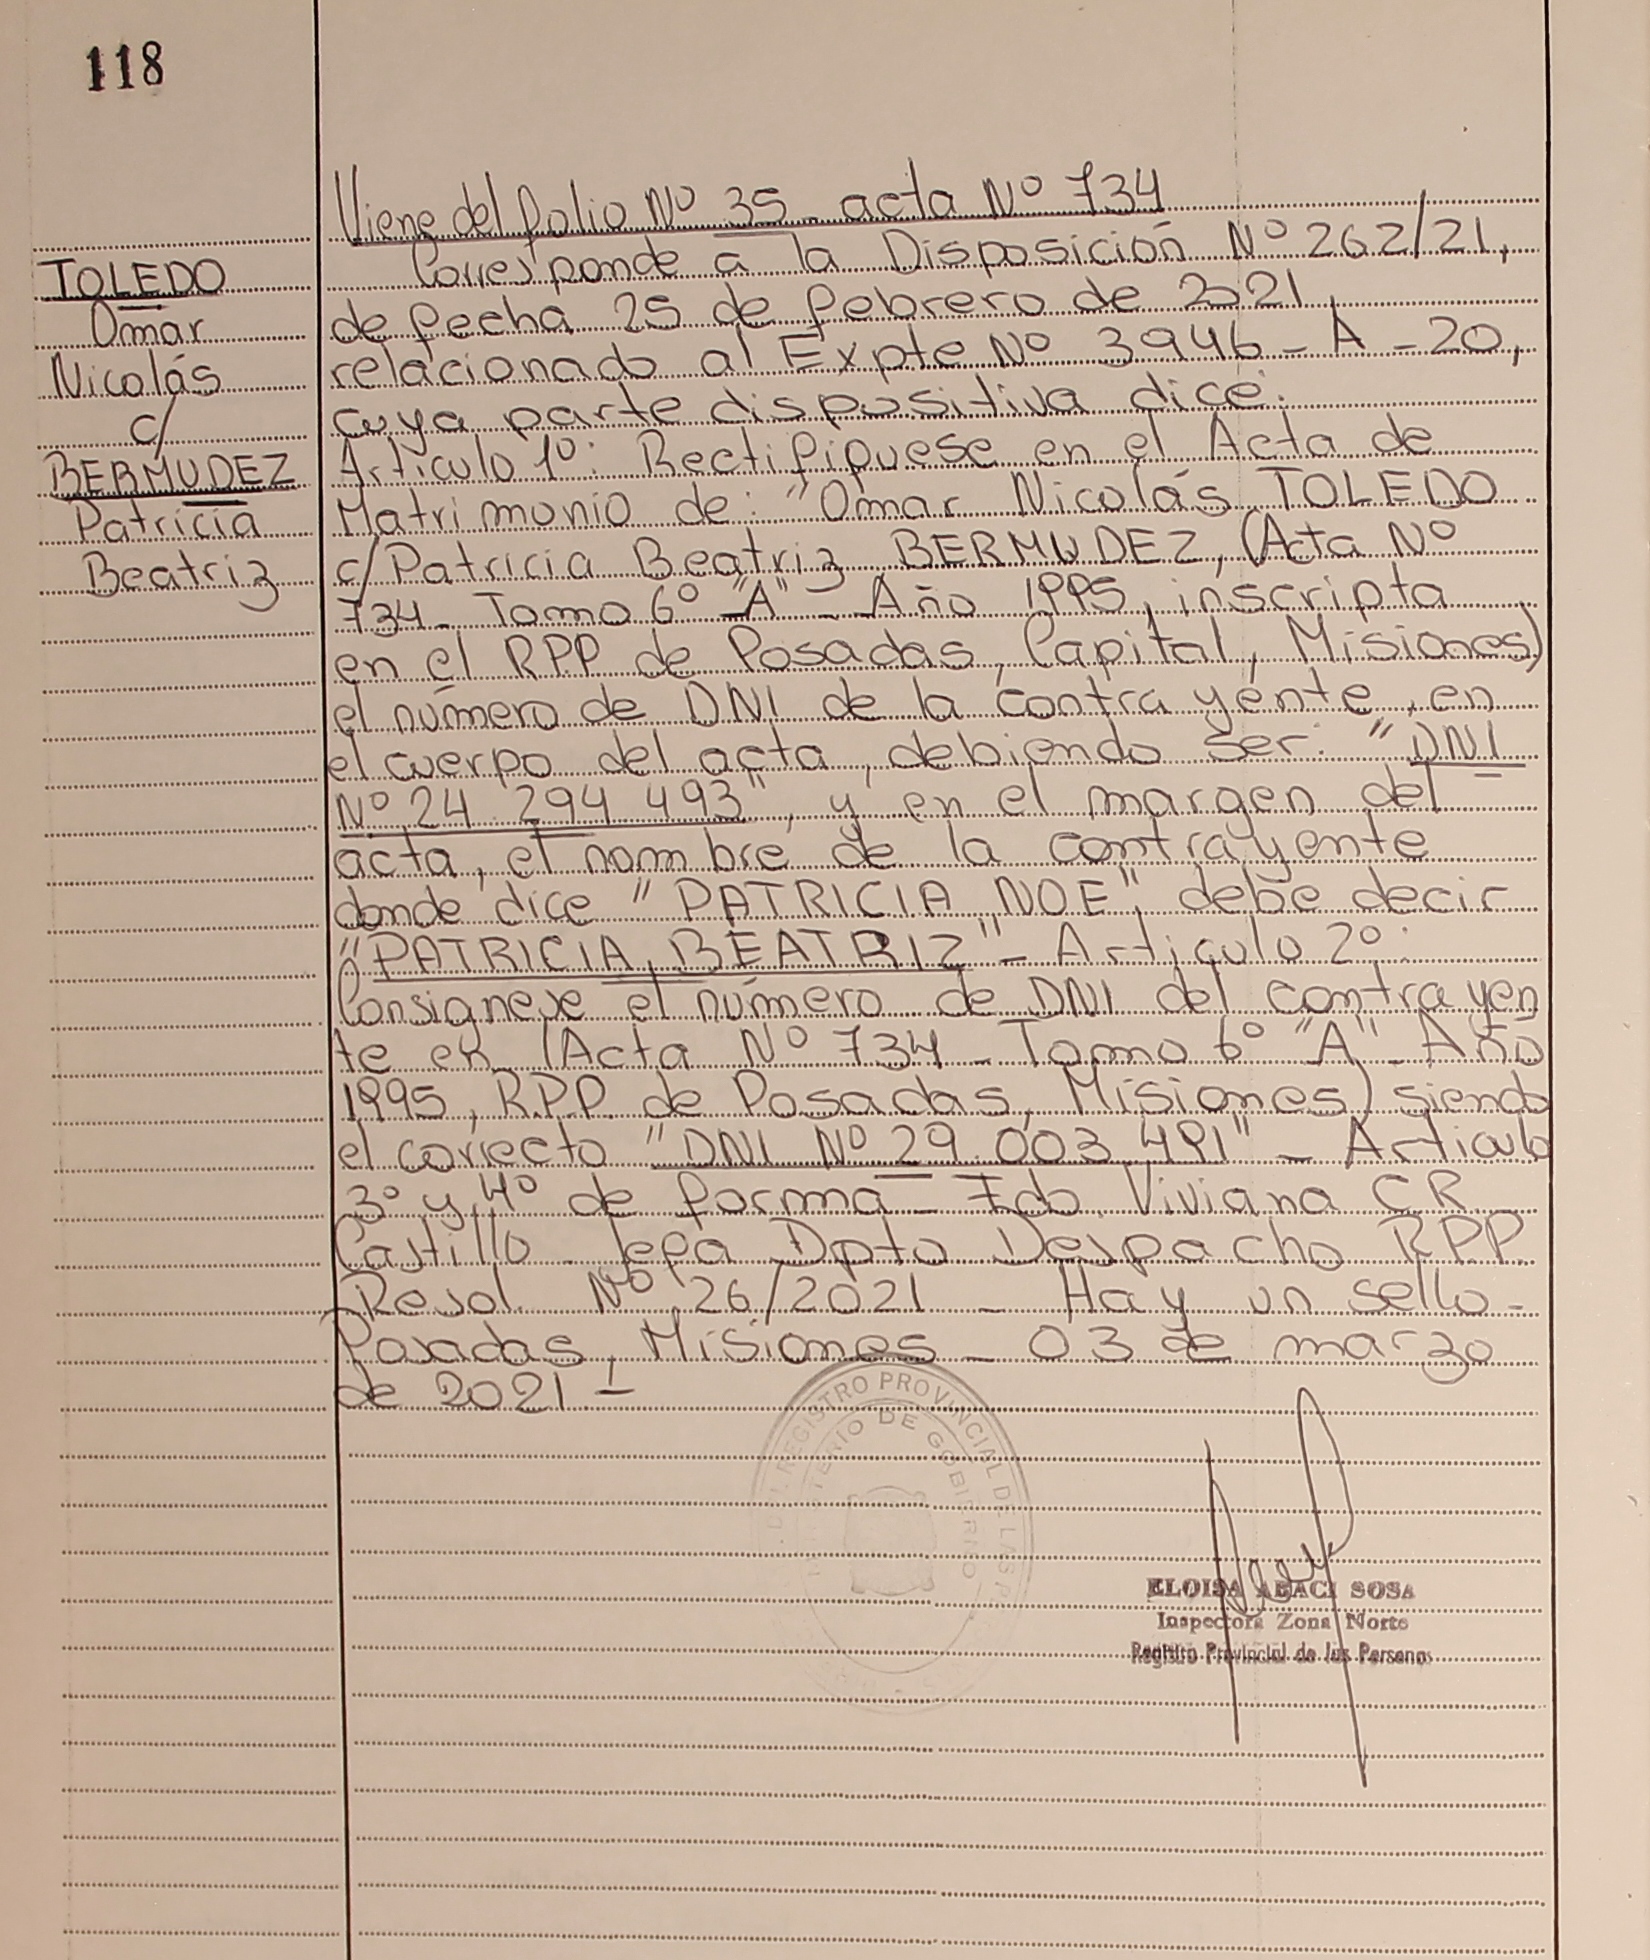 118
TOLEDO
Omar
Nicolás
c/
BERMUDEZ
Patricia
Beatriz
Viene del folio Nº 35 - acta Nº 734
Corresponde a la Disposición Nº 262/21,
de fecha 25 de febrero de 2021,
relacionado al Expte Nº 3946 - A - 20,
cuya parte dispositiva dice:
Artículo 1º: Rectifíquese en el Acta de
Matrimonio de: "Omar Nicolás TOLEDO
c/ Patricia Beatriz BERMUDEZ, (Acta Nº
734 - Tomo 6º "A" - Año 1995, inscripta
en el RPP de Posadas, Capital, Misiones)
el número de DNI de la contrayente, en
el cuerpo del acta, debiendo ser: "DNI
Nº 24.294.493", y en el margen del
acta, el nombre de la contrayente
donde dice "PATRICIA NOE", debe decir
"PATRICIA BEATRIZ" - Articulo 2º:
Consignese el número de DNI del contrayen
te en (Acta Nº 734 - Tomo 6º "A" - Año
1995, RPP. de Posadas, Misiones) siendo
el correcto "DNI Nº 29.003.491" - Articulo
3º y 4º de forma - Fdo. Viviana C.R.
Castillo - Jefa Dpto Despacho RPP
Resol. Nº 26/2021 - Hay un sello -
Posadas, Misiones - 03 de marzo
de 2021 -
REGISTRO PROVINCIAL DE LAS
DE GOBIERNO
ELOISA ABACI SOSA
Inspectora Zona Norte
Registro Provincial de las Personas